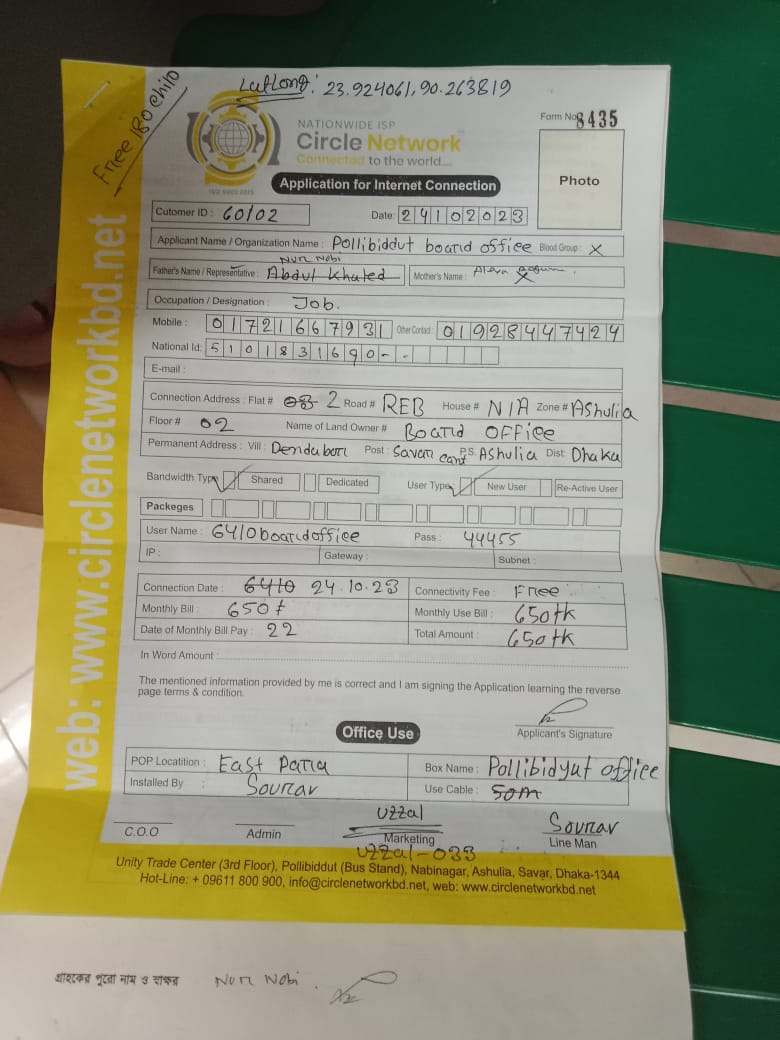 LatLong: 23.924061,90.263819
Free 180 chilo
NATIONWIDE ISP
Form No 8435
Circle Network
Connected to the world...
ISO 9001:2015
Photo
Application for Internet Connection
Cutomer ID : 60102 Date: 24102023
Applicant Name / Organization Name : Pollibiddut board office Blood Group : X
Nur Nobi
Father's Name / Representative : Abdul Khaled Mother's Name :
Occupation / Designation : Job.
Mobile : 01721667931 Other Contact : 01928447424
National Id: 5101831690--
E-mail :
Connection Address : Flat # 2 Road # REB House # N/A Zone # Ashulia
Floor # 02 Name of Land Owner # Board OFFice
Permanent Address : Vill : Dendabor Post : Savar cant P.S. Ashulia Dist: Dhaka
Bandwidth Type Shared Dedicated User Type New User Re-Active User
Packeges
User Name : 6410boardoffice Pass : 44455
IP : Gateway : Subnet :
Connection Date : 6410 24.10.23 Connectivity Fee : Free
Monthly Bill : 650t Monthly Use Bill : 650tk
Date of Monthly Bill Pay : 22 Total Amount : 650tk
In Word Amount :
The mentioned information provided by me is correct and I am signing the Application learning the reverse
page terms & condition.
Applicant's Signature
Office Use
POP Locatition : East Para Box Name : Pollibidyut office
Installed By : Sourav Use Cable : 50m
Uzzal Sourav
C.O.O Admin Marketing Line Man
Uzzal-033
Unity Trade Center (3rd Floor), Pollibiddut (Bus Stand), Nabinagar, Ashulia, Savar, Dhaka-1344
Hot-Line: + 09611 800 900, info@circlenetworkbd.net, web: www.circlenetworkbd.net
web: www.circlenetworkbd.net
গ্রাহকের পুরো নাম ও স্বাক্ষর Nur Nobi.